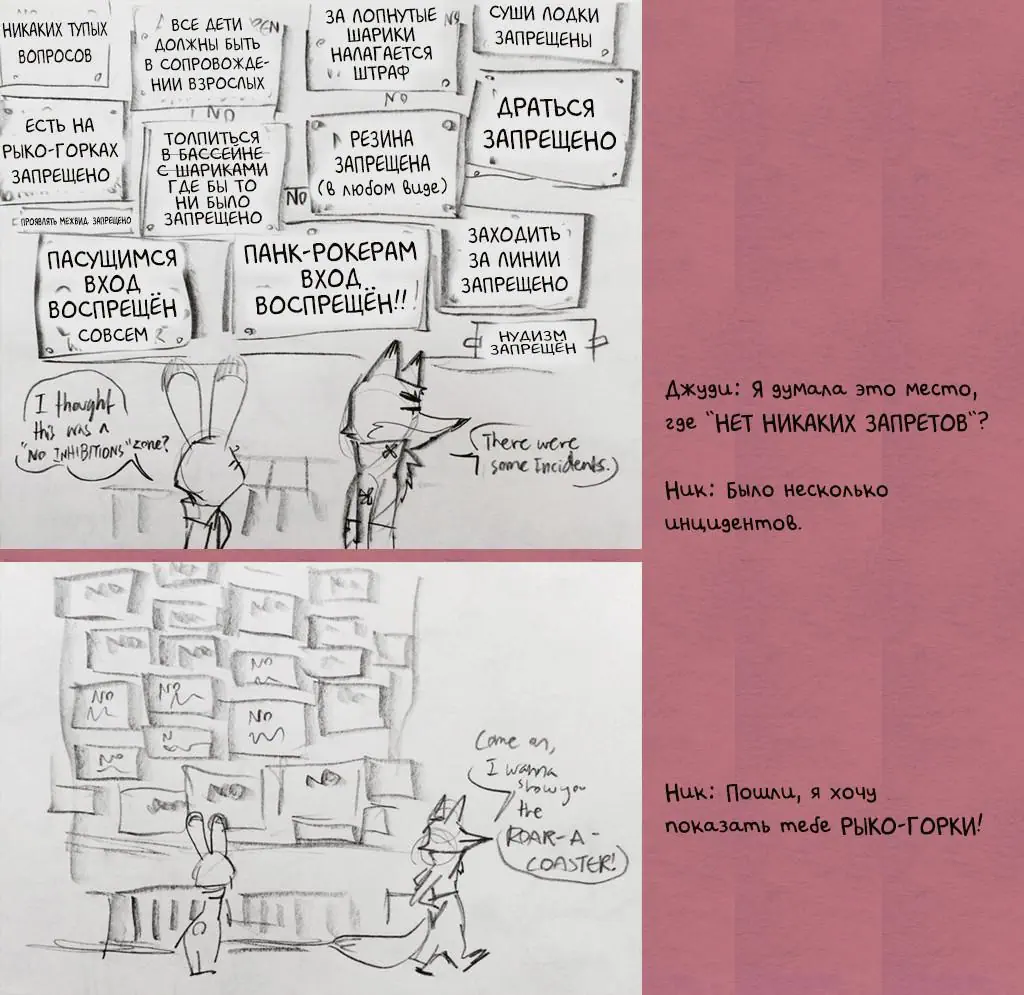 НИКАКИХ ТУПЫХ
ВОПРОСОВ
ВСЕ ДЕТИ
ДОЛЖНЫ БЫТЬ
В СОПРОВОЖДЕ-
НИИ ВЗРОСЛЫХ
ЗА ЛОПНУТЫЕ
ШАРИКИ
НАЛАГАЕТСЯ
ШТРАФ
NO
СУШИ ЛОДКИ
ЗАПРЕЩЕНЫ
ЕСТЬ НА
РЫКО-ГОРКАХ
ЗАПРЕЩЕНО
NO
ТОЛПИТЬСЯ
В БАССЕЙНЕ
С ШАРИКАМИ
ГДЕ БЫ ТО
НИ БЫЛО
ЗАПРЕЩЕНО
NO
РЕЗИНА
ЗАПРЕЩЕНА
(в любом виде)
NO
ДРАТЬСЯ
ЗАПРЕЩЕНО
ПРОЯВЛЯТЬ МЕХВИД ЗАПРЕЩЕНО
ПАСУЩИМСЯ
ВХОД
ВОСПРЕЩЁН
СОВСЕМ
ПАНК-РОКЕРАМ
ВХОД
ВОСПРЕЩЁН!!
ЗАХОДИТЬ
ЗА ЛИНИИ
ЗАПРЕЩЕНО
НУДИЗМ
ЗАПРЕЩЁН
I thought
this was a
"NO INHIBITIONS" zone?
There were
some Incidents.
Джуди: Я думала это место,
где "НЕТ НИКАКИХ ЗАПРЕТОВ"?
Ник: Было несколько
инцидентов.
NO
NO
NO
NO
NO
NO
NO
NO
NO
NO
NO
Come on,
I wanna
show you
the
ROAR-A-
COASTER!
Ник: Пошли, я хочу
показать тебе РЫКО-ГОРКИ!